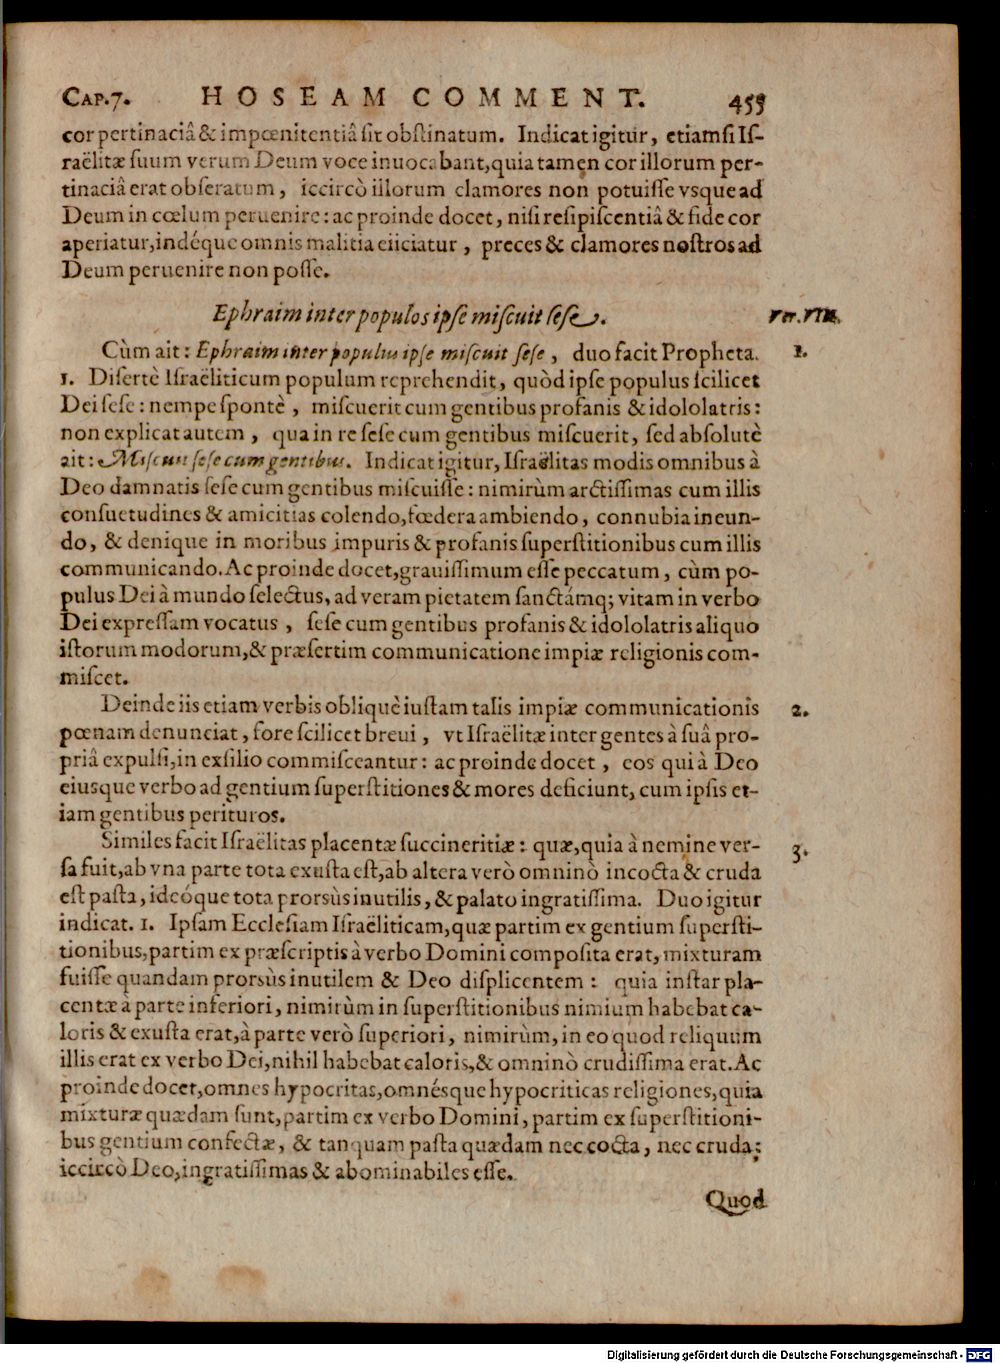 CAP.7. HOSEAM COMMENT. 455
cor pertinaciâ & impœnitentiâ sit obstinatum. Indicat igitur, etiamsi Is-
raëlitæ suum verum Deum voce inuocabant, quia tamen cor illorum per-
tinaciâ erat obseratum, iccircò illorum clamores non potuisse vsque ad
Deum in cœlum peruenire: ac proinde docet, nisi resipiscentiâ & fide cor
aperiatur, indéque omnis malitia eiiciatur, preces & clamores nostros ad
Deum peruenire non posse.
Ephraim inter populos ipse miscuit sese. Ver. VIII.
Cùm ait: Ephraim inter populus ipse miscuit sese, duo facit Propheta. 1.
1. Disertè Israëliticum populum reprehendit, quòd ipse populus scilicet
Dei sese: nempe spontè, miscuerit cum gentibus profanis & idololatris:
non explicat autem, qua in re sese cum gentibus miscuerit, sed absolutè
ait: Miscuit sese cum gentibus. Indicat igitur, Israëlitas modis omnibus à
Deo damnatis sese cum gentibus miscuisse: nimirùm arctissimas cum illis
consuetudines & amicitias colendo, fœdera ambiendo, connubia ineun-
do, & denique in moribus impuris & profanis superstitionibus cum illis
communicando. Ac proinde docet, grauissimum esse peccatum, cùm po-
pulus Dei à mundo selectus, ad veram pietatem sanctámq; vitam in verbo
Dei expressam vocatus, sese cum gentibus profanis & idololatris aliquo
istorum modorum, & præsertim communicatione impiæ religionis com-
miscet.
Deinde iis etiam verbis obliquè iustam talis impiæ communicationis 2.
pœnam denunciat, fore scilicet breui, vt Israëlitæ inter gentes à suâ pro-
priâ expulsi, in exsilio commisceantur: ac proinde docet, eos qui à Deo
eiusque verbo ad gentium superstitiones & mores deficiunt, cum ipsis et-
iam gentibus perituros.
Similes facit Israëlitas placentæ succineritiæ: quæ, quia à nemine ver- 3.
sa fuit, ab vna parte tota exusta est, ab altera verò omninò incocta & cruda
est pasta, ideóque tota prorsùs inutilis, & palato ingratissima. Duo igitur
indicat. 1. Ipsam Ecclesiam Israëliticam, quæ partim ex gentium supersti-
tionibus, partim ex præscriptis à verbo Domini composita erat, mixturam
fuisse quandam prorsùs inutilem & Deo displicentem: quia instar pla-
centæ à parte inferiori, nimirùm in superstitionibus nimium habebat ca-
loris & exusta erat, à parte verò superiori, nimirùm, in eo quod reliquum
illis erat ex verbo Dei, nihil habebat caloris, & omninò crudissima erat. Ac
proinde docet, omnes hypocritas, omnésque hypocriticas religiones, quia
mixturæ quædam sunt, partim ex verbo Domini, partim ex superstitioni-
bus gentium confectæ, & tanquam pasta quædam nec cocta, nec cruda;
iccircò Deo, ingratissimas & abominabiles esse.
Quod
Digitalisierung gefördert durch die Deutsche Forschungsgemeinschaft - DFG